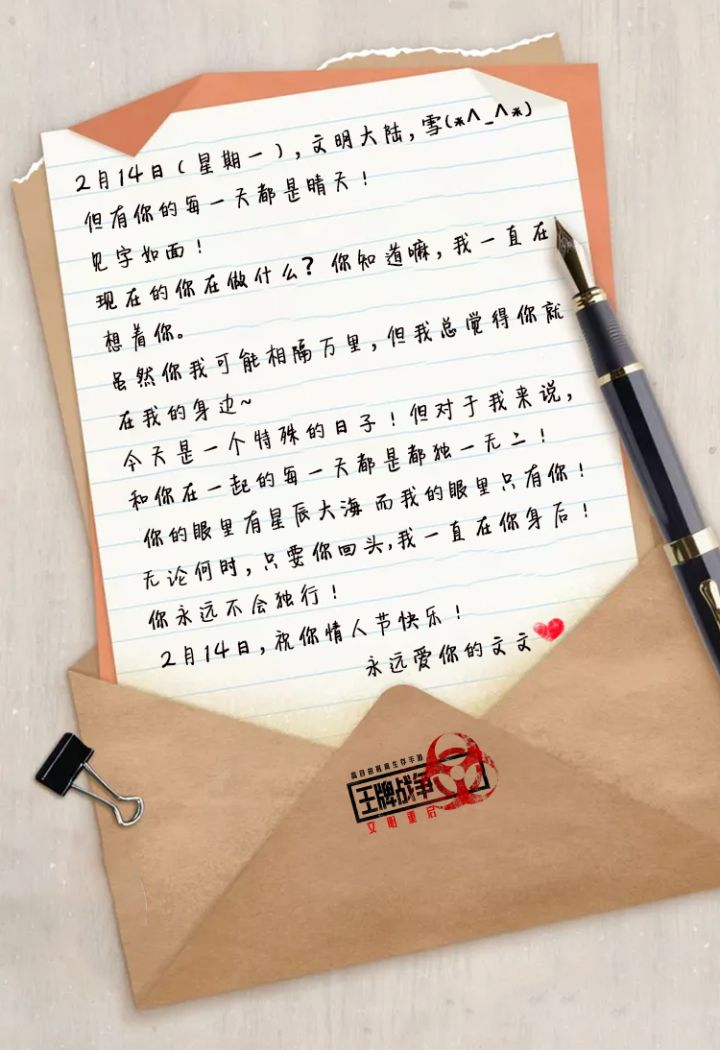 2月14日（星期一），文明大陆，雪(*^_^*)
但有你的每一天都是晴天！
见字如面！
现在的你在做什么？你知道嘛，我一直在
想着你。
虽然你我可能相隔万里，但我总觉得你就
在我的身边~
今天是一个特殊的日子！但对于我来说，
和你在一起的每一天都是都独一无二！
你的眼里有星辰大海 而我的眼里只有你！
无论何时，只要你回头，我一直在你身后！
你永远不会独行！
2月14日，祝你情人节快乐！
永远爱你的文文
王牌战争
文明重启